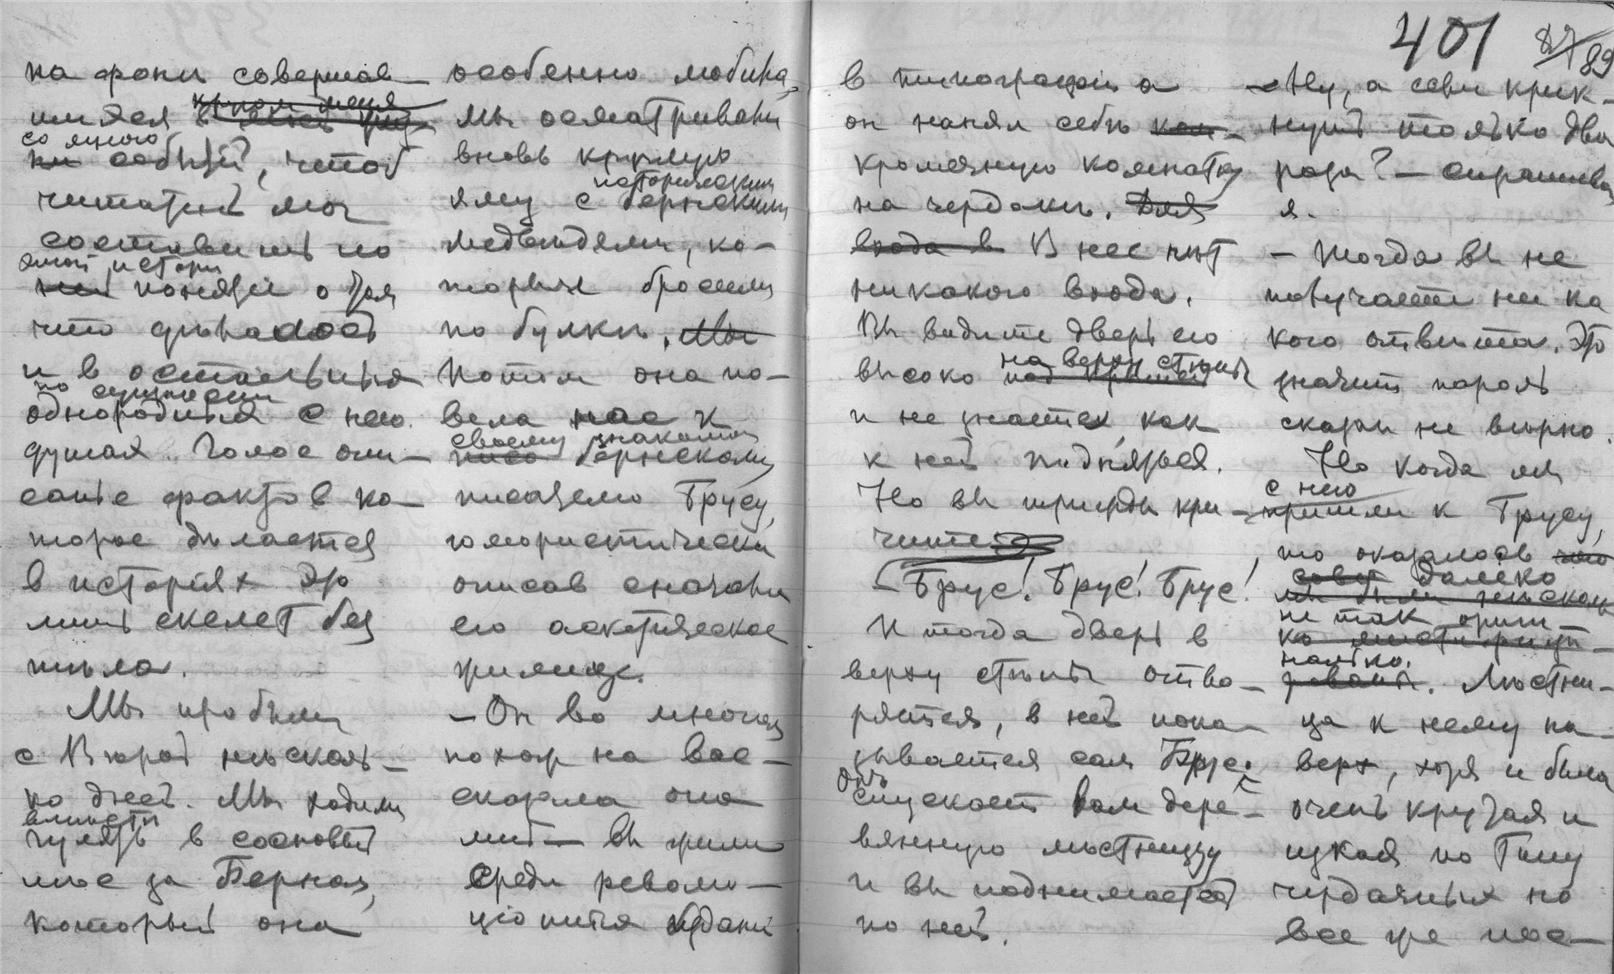 401 87 89
на фонѣ совершав-
шихся
со мною
событій, чтоб
читатель мог
составить по
этой истори
понятіе о том
что дѣлалось
и в остальных
по существу
однородных с нею.
думая. Голое опи-
саніе фактов ко-
торое дѣлается
в исторіях это
лишь скелет без
тѣла.
Мы пробыли
с Вѣрой нѣсколь-
ко дней. Мы ходили
вмѣстѣ
гулять в сосновый
лѣс за Берном,
который она
особенно любила,
мы осматривали
вновь круглую
историческими
яму с бернскими
медвѣдями, ко-
торым бросили
по булкѣ. Мы
Потом она по-
вела нас к
своему знакомому
бернскому
писателю Брусу,
юмористически
описав сначала
его аскетическое
жилище.
— Он во многом
похож на вас —
сказала она
мнѣ — вы жили
среди револю-
ціонных изданій
в типографіи а
он нанял себѣ
кромечную комнатку
на чердакѣ. Для
входа в В нее нѣт
никакого входа.
Вы видите дверь его
на верху стѣны
высоко под крышей
и не знаете, как
к ней подняться.
Но вы трижды кри-
чите
— Брус! Брус! Брус!
И тогда дверь в
верху стѣны отво-
ряется, в ней пока-
зывается сам Брус.
Он
спускает вам дере-
вянную лѣстницу
и вы поднимаетесь
по ней.
— Ну, а если крик-
нуть только два
раза? — спрашиваю
я.
— Тогда вы не
получаете ни ка-
кого отвѣта. Это
значит пароль
сказан не вѣрно.
Но когда мы
с нею
пришли к Брусу,
то оказалось
далеко
не так ориги-
нально. Лѣстни-
ца к нему на-
верх, хотя и была
очень крутая и
узкая по типу
чердачных но
все же пос-